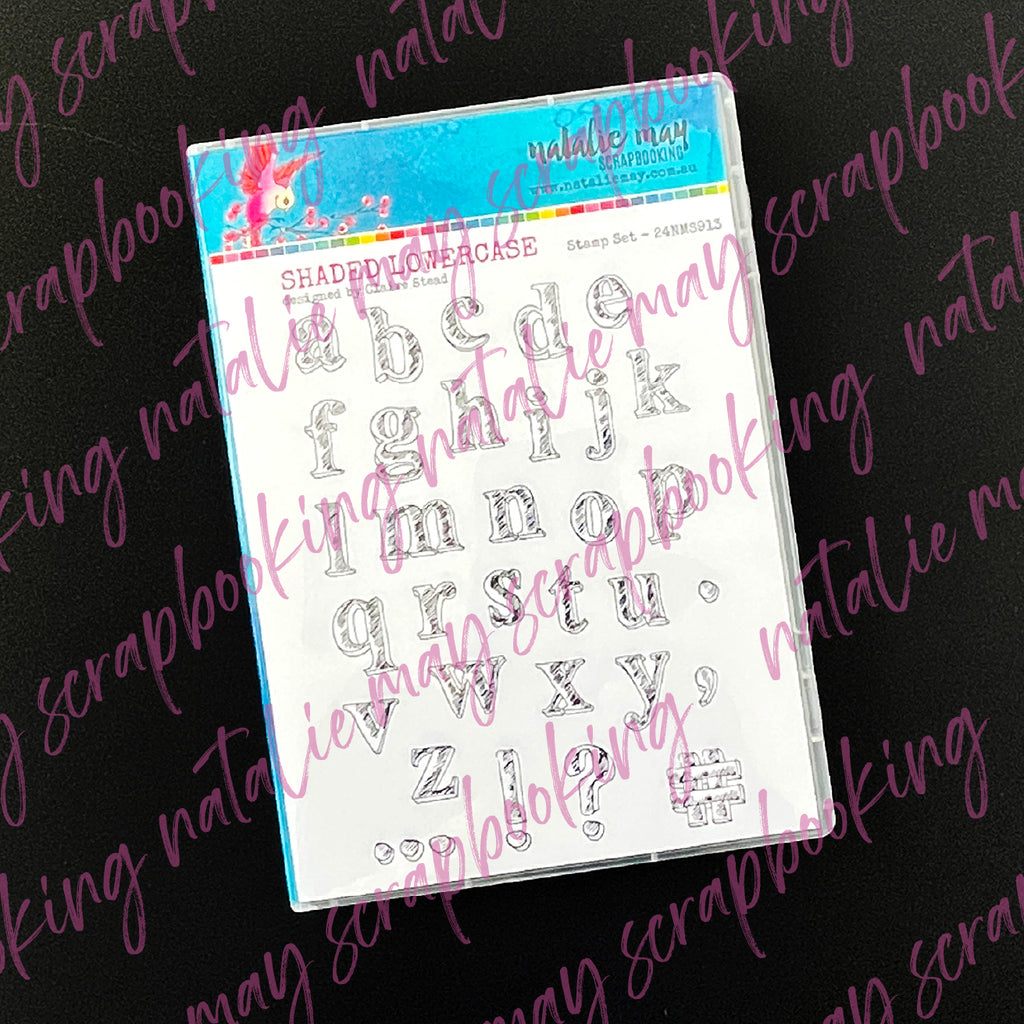 natalie may
SCRAPBOOKING
www.nataliemay.com.au
SHADED LOWERCASE
Stamp Set - 24NMS913
designed by Claire Stead
a b c d e
f g h i j k
l m n o p
q r s t u .
v w x y ,
z ! ? #
...
natalie may scrapbooking
natalie may scrapbooking
natalie may scrapbooking
natalie may scrapbooking